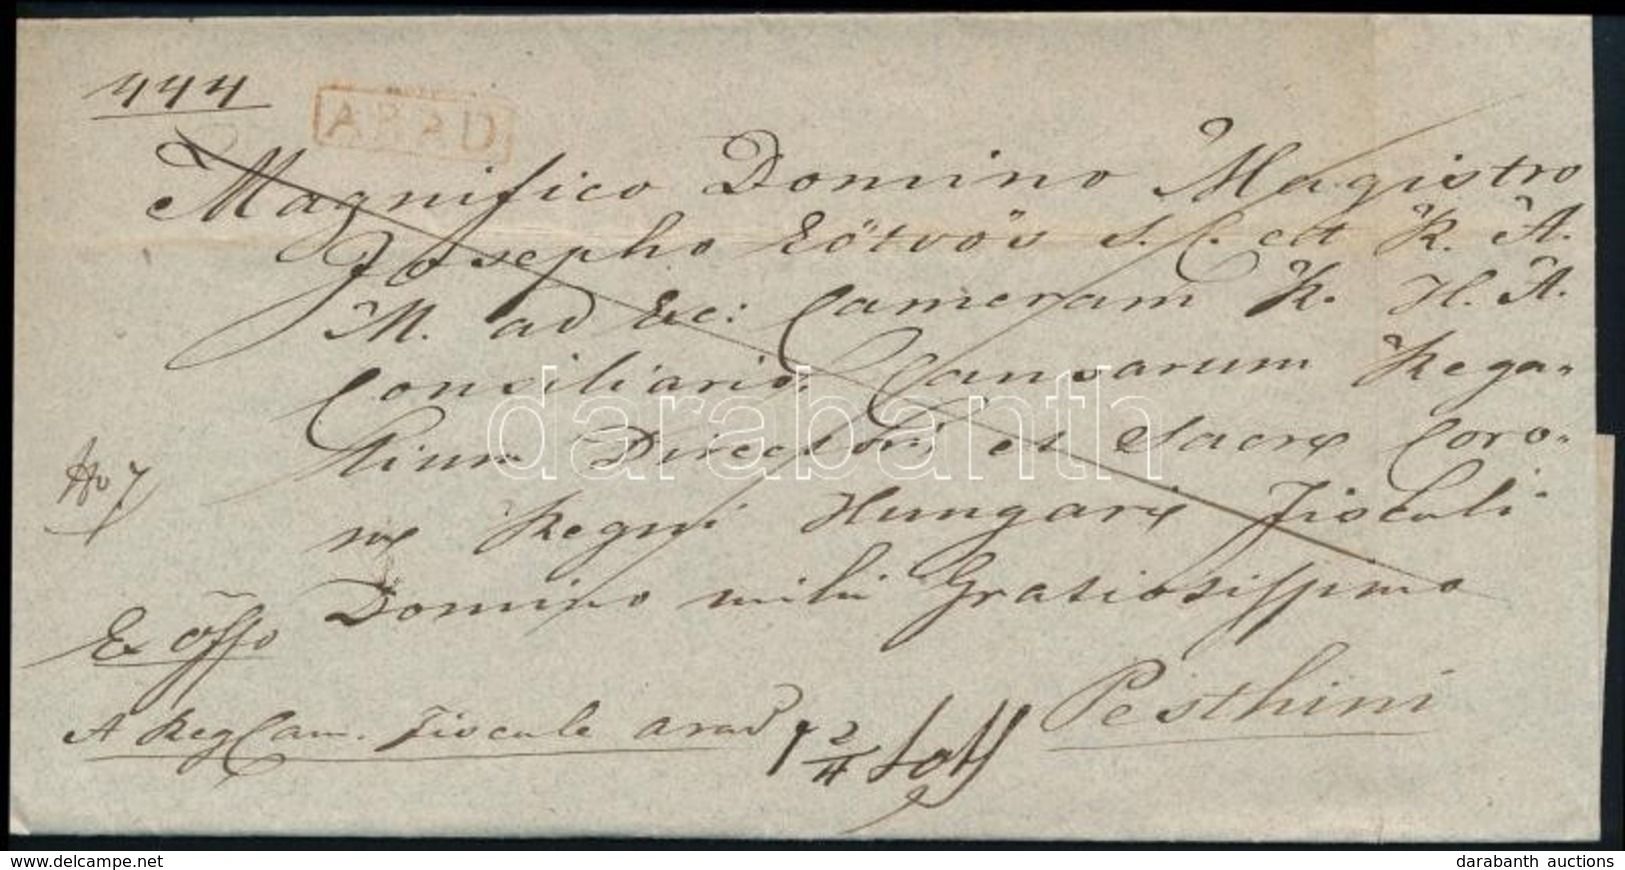 444
ARAD
Magnifico Domino Magistro
Josepho Eötvös S. C. ett R. A.
M. ad Exc: Cameram R. H. A.
Consiliario, Causarum Rega-
lium Directori et Sacræ Coro-
næ Regni Hungariæ Fiscali
Domino mihi Gratiosissimo
No 7
Ex Offo
Pesthini
A Reg Cam. Fiscale Arad
2/4 Loth
darabanth
www.delcampe.net
darabanth auctions